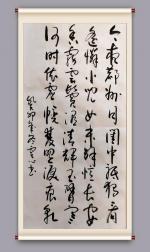 今夜鄜州月閨中祇獨看
遙憐小兒女未解憶長安
香霧雲鬟濕清輝玉臂寒
何時依虛幌雙照淚痕乾
癸卯年冬